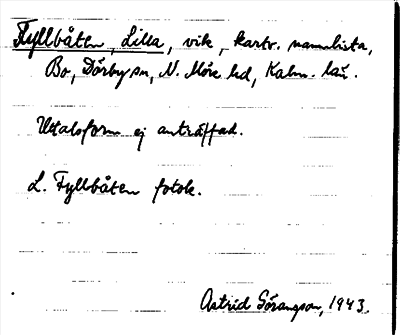 Fyllbåten, Lilla, vik, kartv. namnlista,
Bo, Dörby sn, N. Möre hd, Kalm. län.
Uttalsform ej anträffad.
L. Fyllbåten fotok.
Astrid Göransson, 1943.